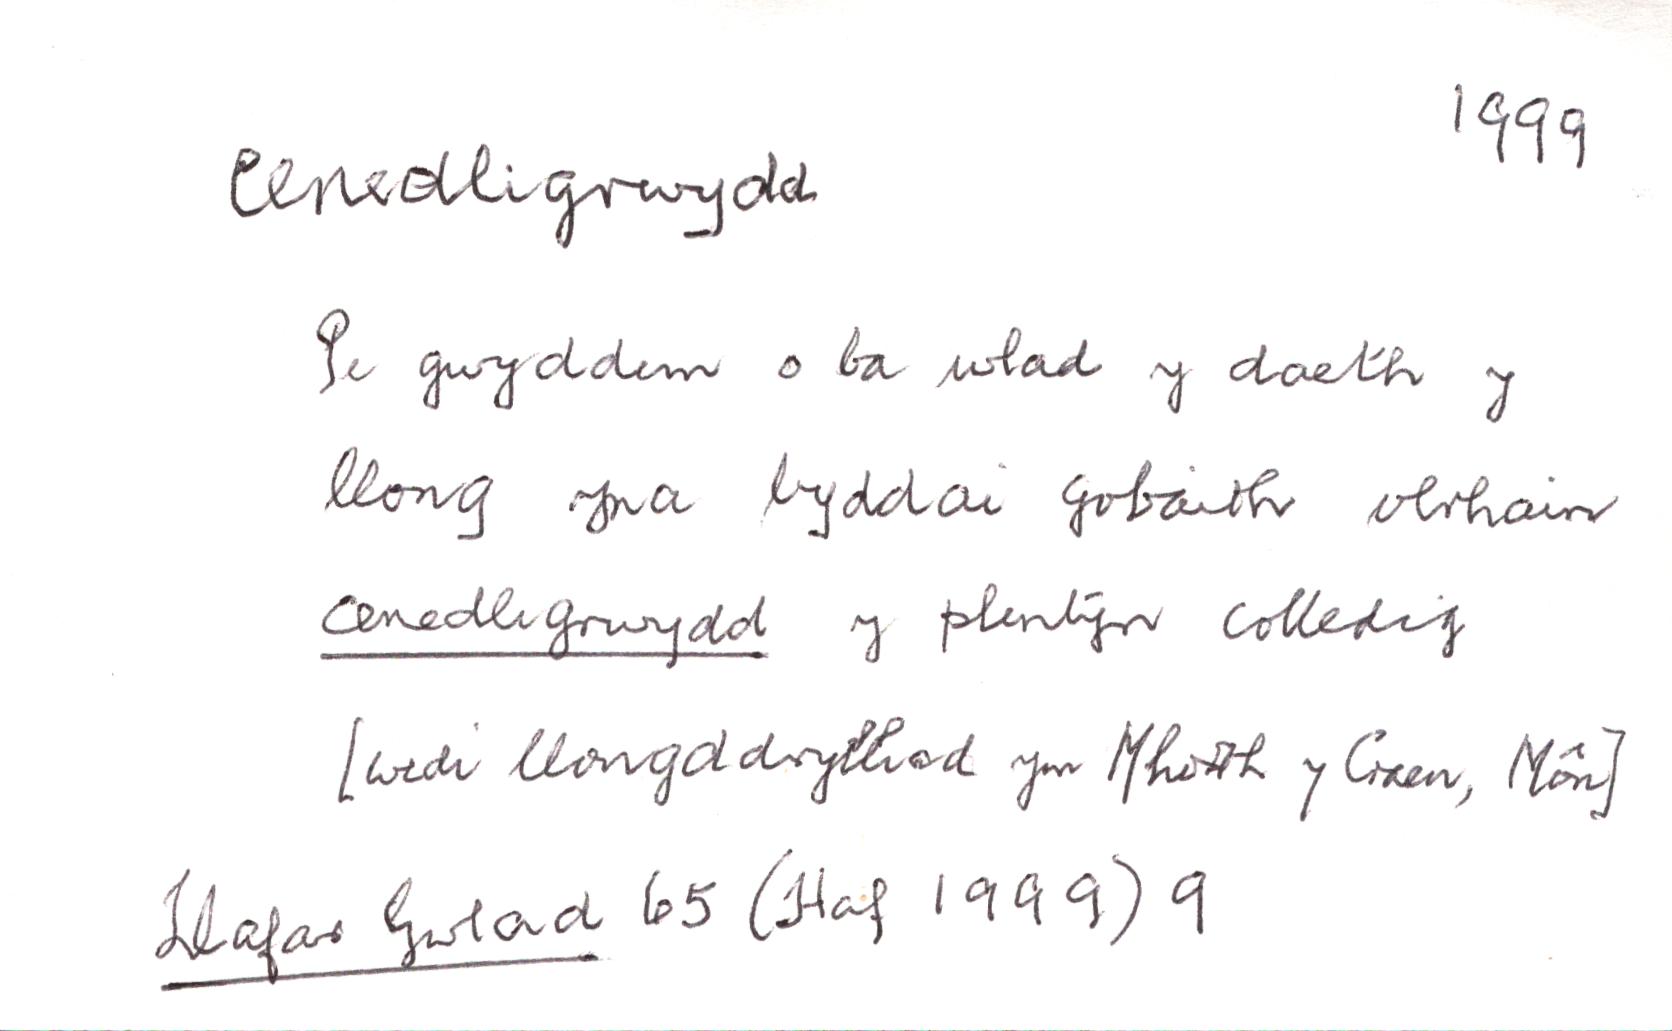 1999
cenedligrwydd
Pe gwyddem o ba wlad y daeth y
llong yna byddai gobaith olrhain
cenedligrwydd y plentyn colledig
[wedi llongddrylliad ym Mhorth y Craen, Môn]
Llafar Gwlad 65 (Haf 1999) 9